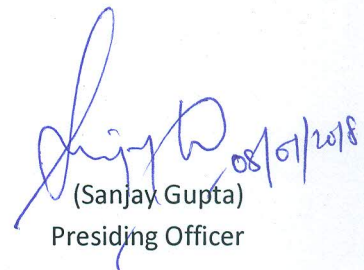 Sanjay G 08/01/2018
(Sanjay Gupta)
Presiding Officer